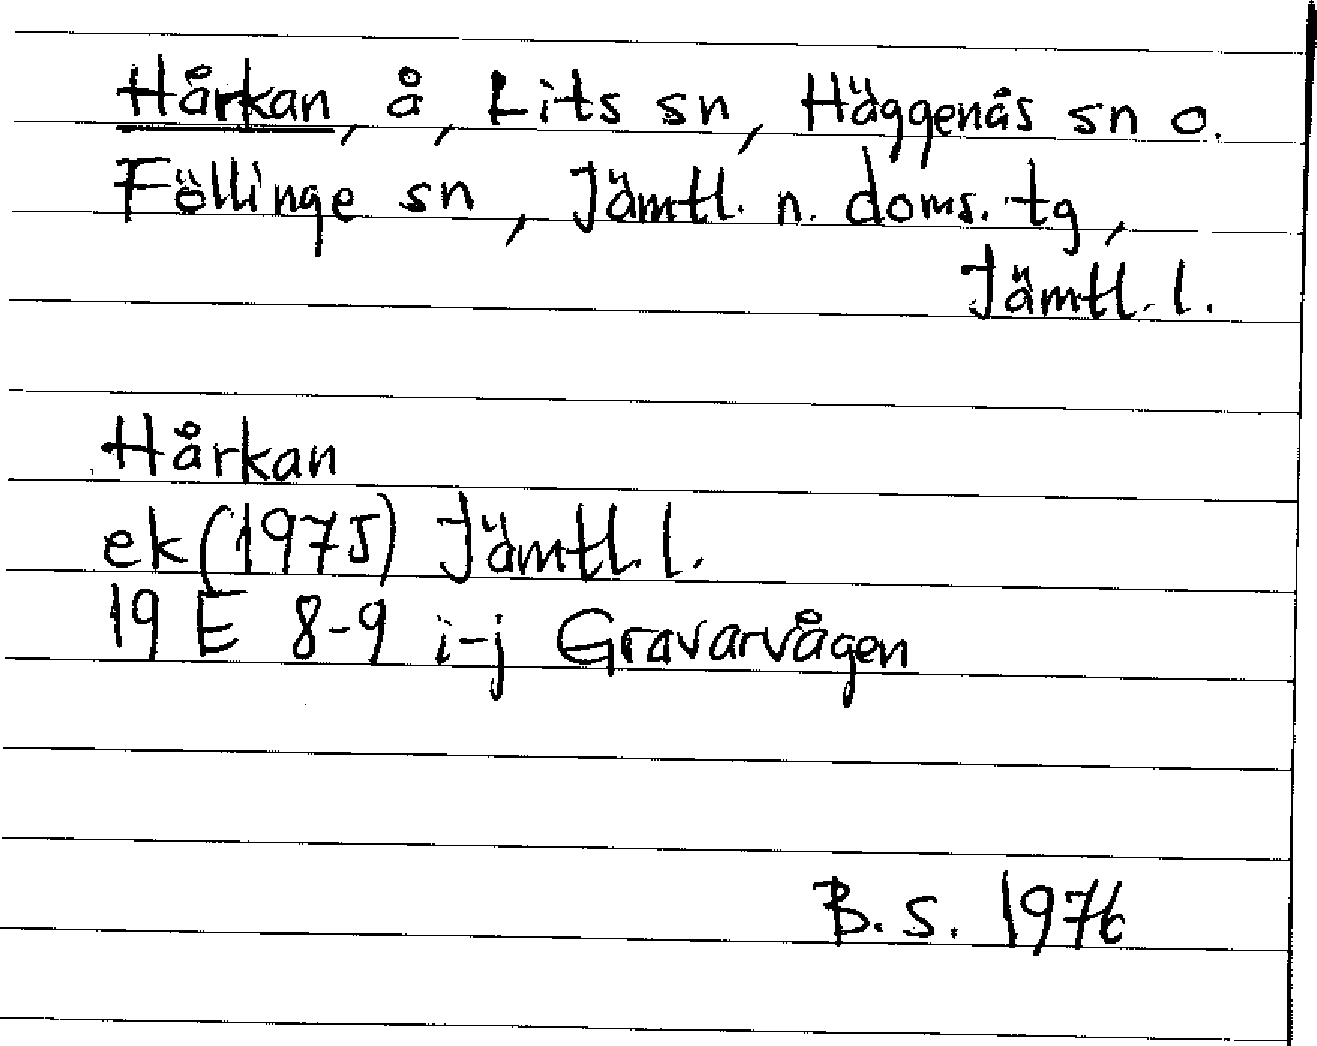 Hårkan, å, Lits sn, Häggenås sn o.
Föllinge sn, Jämtl. n. doms. tg,
Jämtl. l.
Hårkan
ek (1975) Jämtl. l.
19 E 8-9 i-j Gravarvågen
B. S. 1976